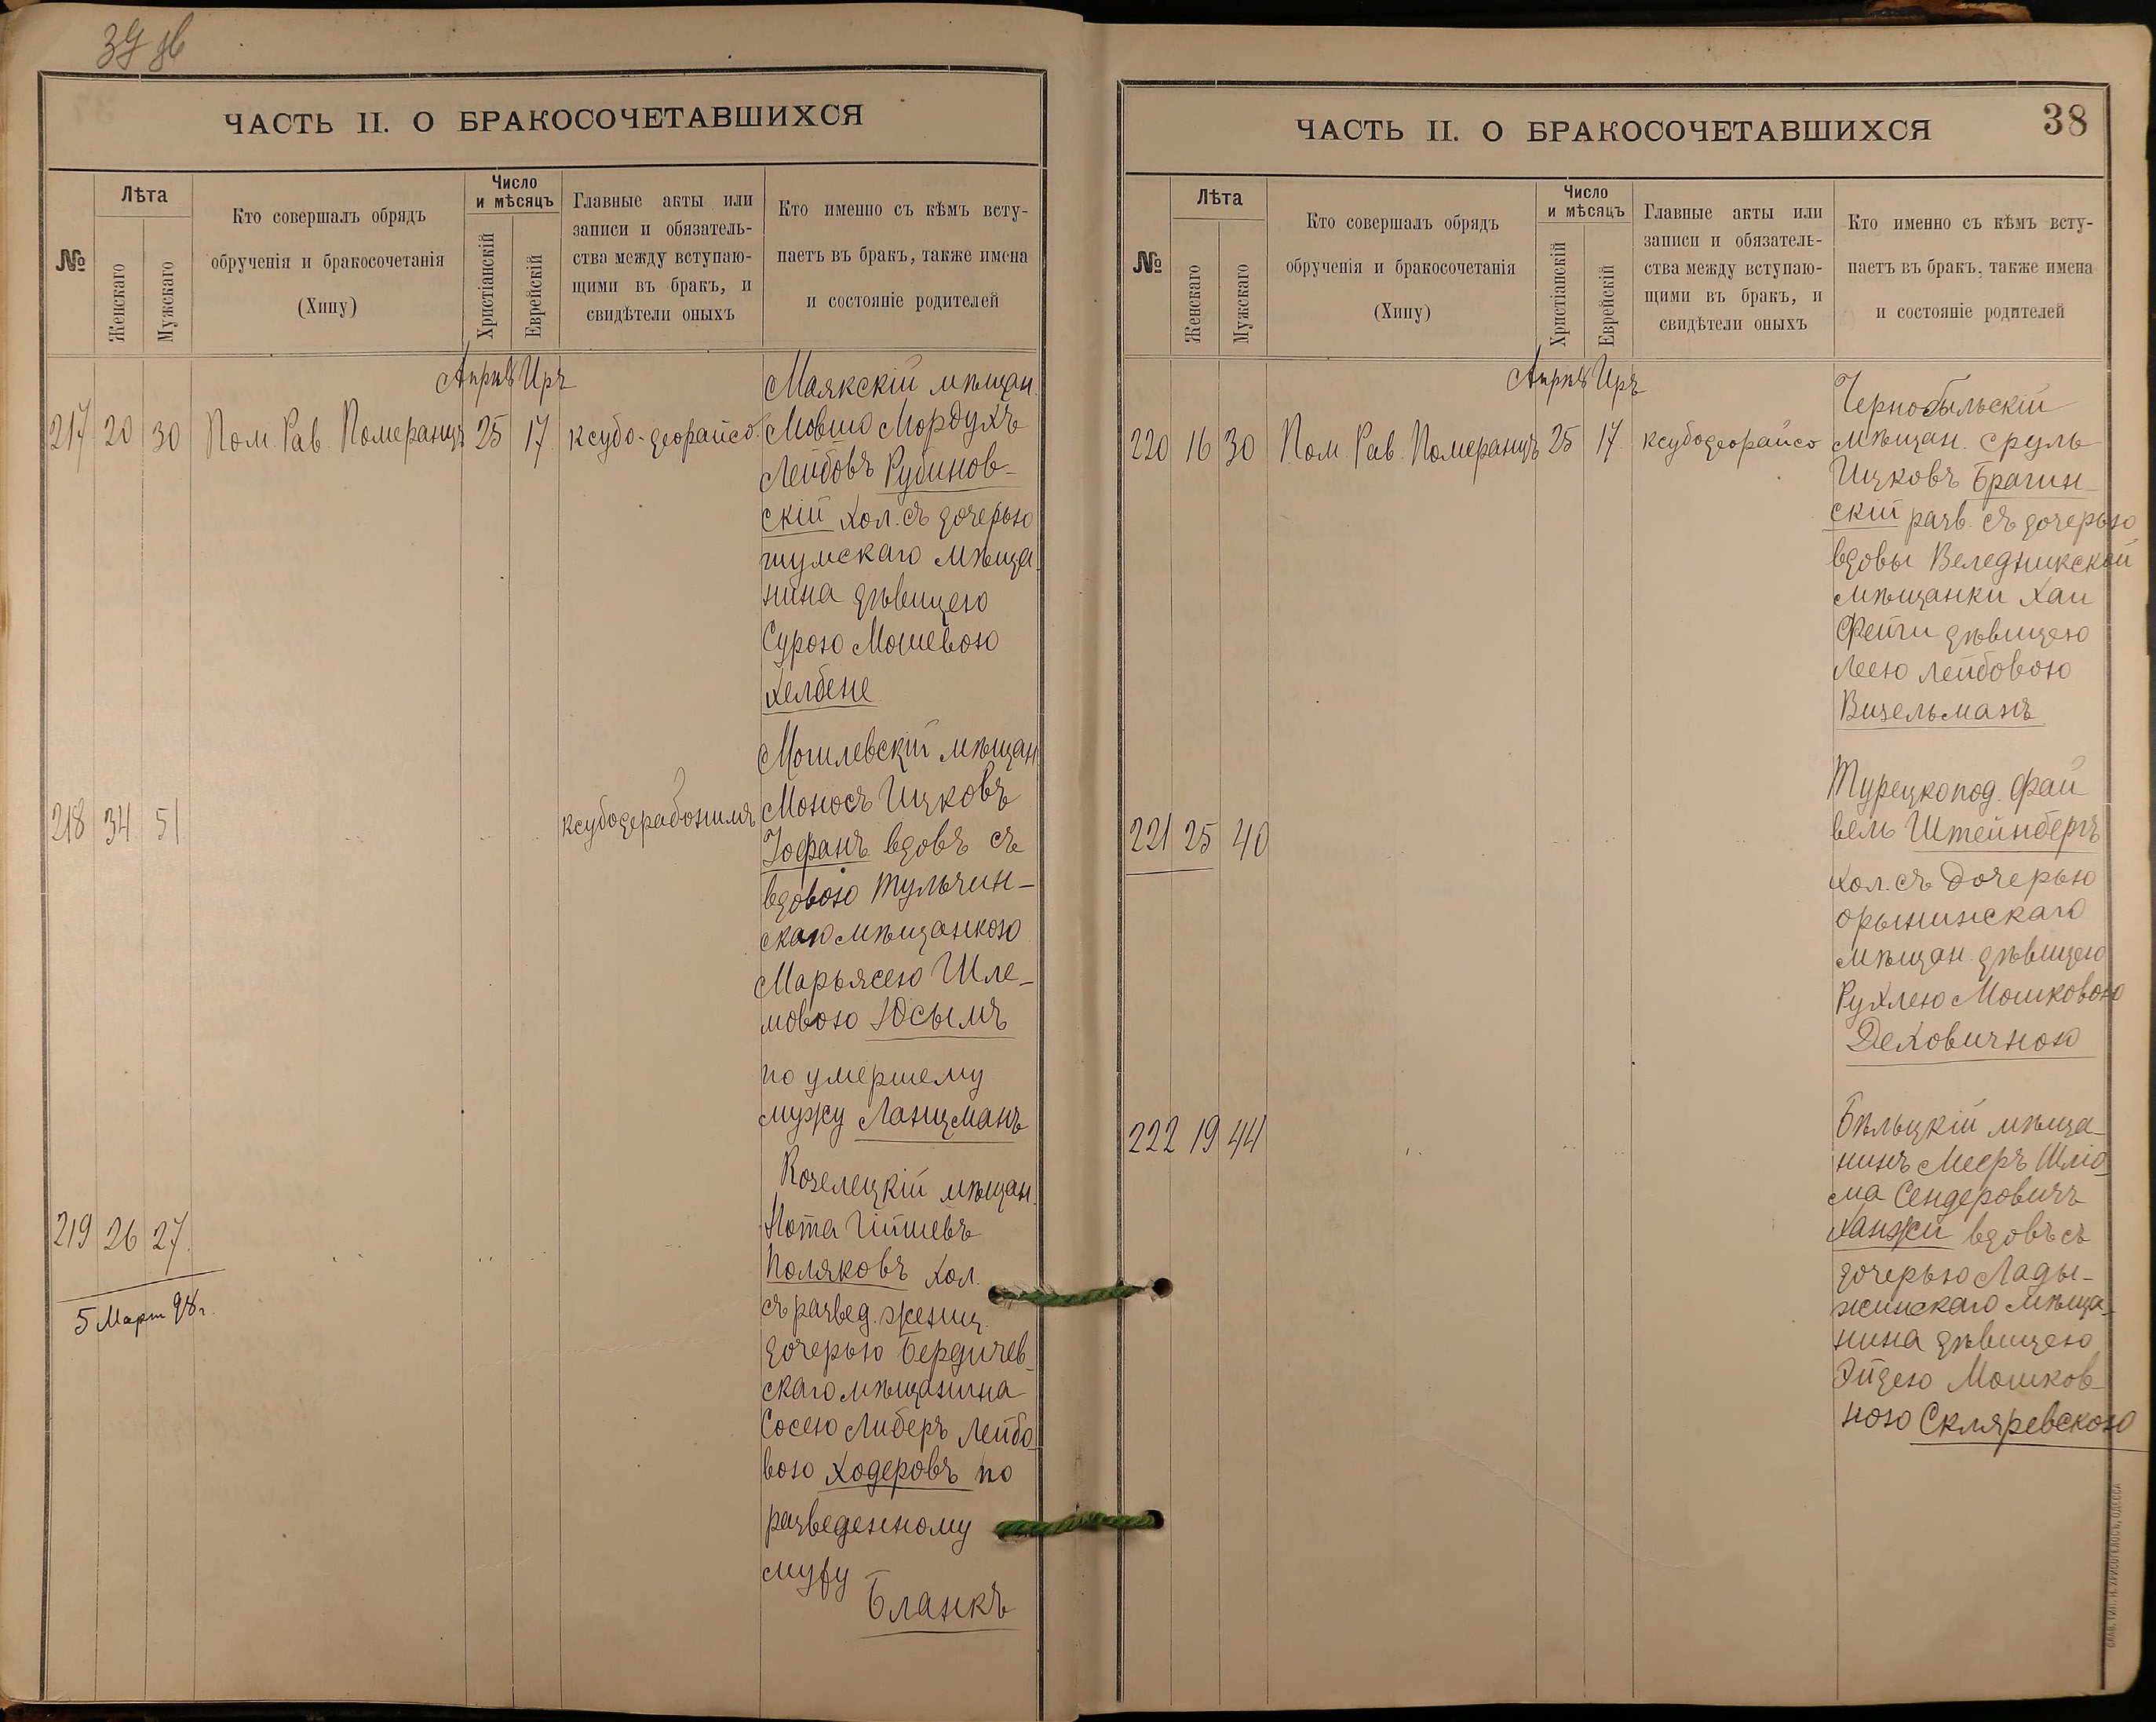 37 об
ЧАСТЬ II. О БРАКОСОЧЕТАВШИХСЯ
№
Лѣта
Женскаго
Мужскаго
Кто совершалъ обрядъ
обрученія и бракосочетанія
(Хипу)
Число
и мѣсяцъ
Христіанскій
Еврейскій
Главные акты или
записи и обязатель-
ства между вступаю-
щими въ бракъ, и
свидѣтели оныхъ
Кто именно съ кѣмъ всту-
паетъ въ бракъ, также имена
и состояніе родителей
Апрѣл Иръ
217 20 30 Пом. Рав. Померанцъ 25 17 ксубо-деорайсо
Маякскій мѣщан.
Мовшо Мордухъ
Лейбовъ Рубинов-
скій хол. съ дочерью
шумскаго мѣща-
нина дѣвицею
Сурою Мошевою
Хелбене
218 34 51 ксубодерабонимъ
Могилевскій мѣщан.
Моносъ Ицковъ
Гофанъ вдовъ съ
вдовою Тульчин-
скою мѣщанкою
Марьясею Шле-
мовою Юсымъ
по умершему
мужу Ланцманъ
219 26 27
5 Март 98 г.
Козелецкій мѣщан.
Нота
Поляковъ хол.
съ развед. женщ.
дочерью Бердичев-
скаго мѣщанина
Сосею Либеръ Лейбо-
вою Ходеровъ по
разведенному
мужу
Бланкъ
ЧАСТЬ II. О БРАКОСОЧЕТАВШИХСЯ
38
№
Лѣта
Женскаго
Мужскаго
Кто совершалъ обрядъ
обрученія и бракосочетанія
(Хипу)
Число
и мѣсяцъ
Христіанскій
Еврейскій
Главные акты или
записи и обязатель-
ства между вступаю-
щими въ бракъ, и
свидѣтели оныхъ
Кто именно съ кѣмъ всту-
паетъ въ бракъ, также имена
и состояніе родителей
Апрѣл Иръ
220 16 30 Пом. Рав. Померанцъ 25 17 ксубодеорайсо
Чернобыльскій
мѣщан. Сруль
Ицковъ Брагин-
скій разв. съ дочерью
вдовы Веледникской
мѣщанки Хаи
Фейги дѣвицею
Леею Лейбовою
Визельманъ
221 25 40
Турецкопод. Фай
вель Штейнбергъ
хол. съ дочерью
орынинскаго
мѣщан. дѣвицею
Рухлею Мошковою
Деховичною
222 19 44
Бѣльцкій мѣща-
нинъ Мееръ Шліо-
ма Сендеровичъ
Ханжи вдовъ съ
дочерью Лады-
жинскаго мѣща-
нина дѣвицею
Эйдею Мошков-
ною Скляревскою
СЛАВ. ТИП. Н. ХРИСОГЕЛОСЪ, ОДЕССА